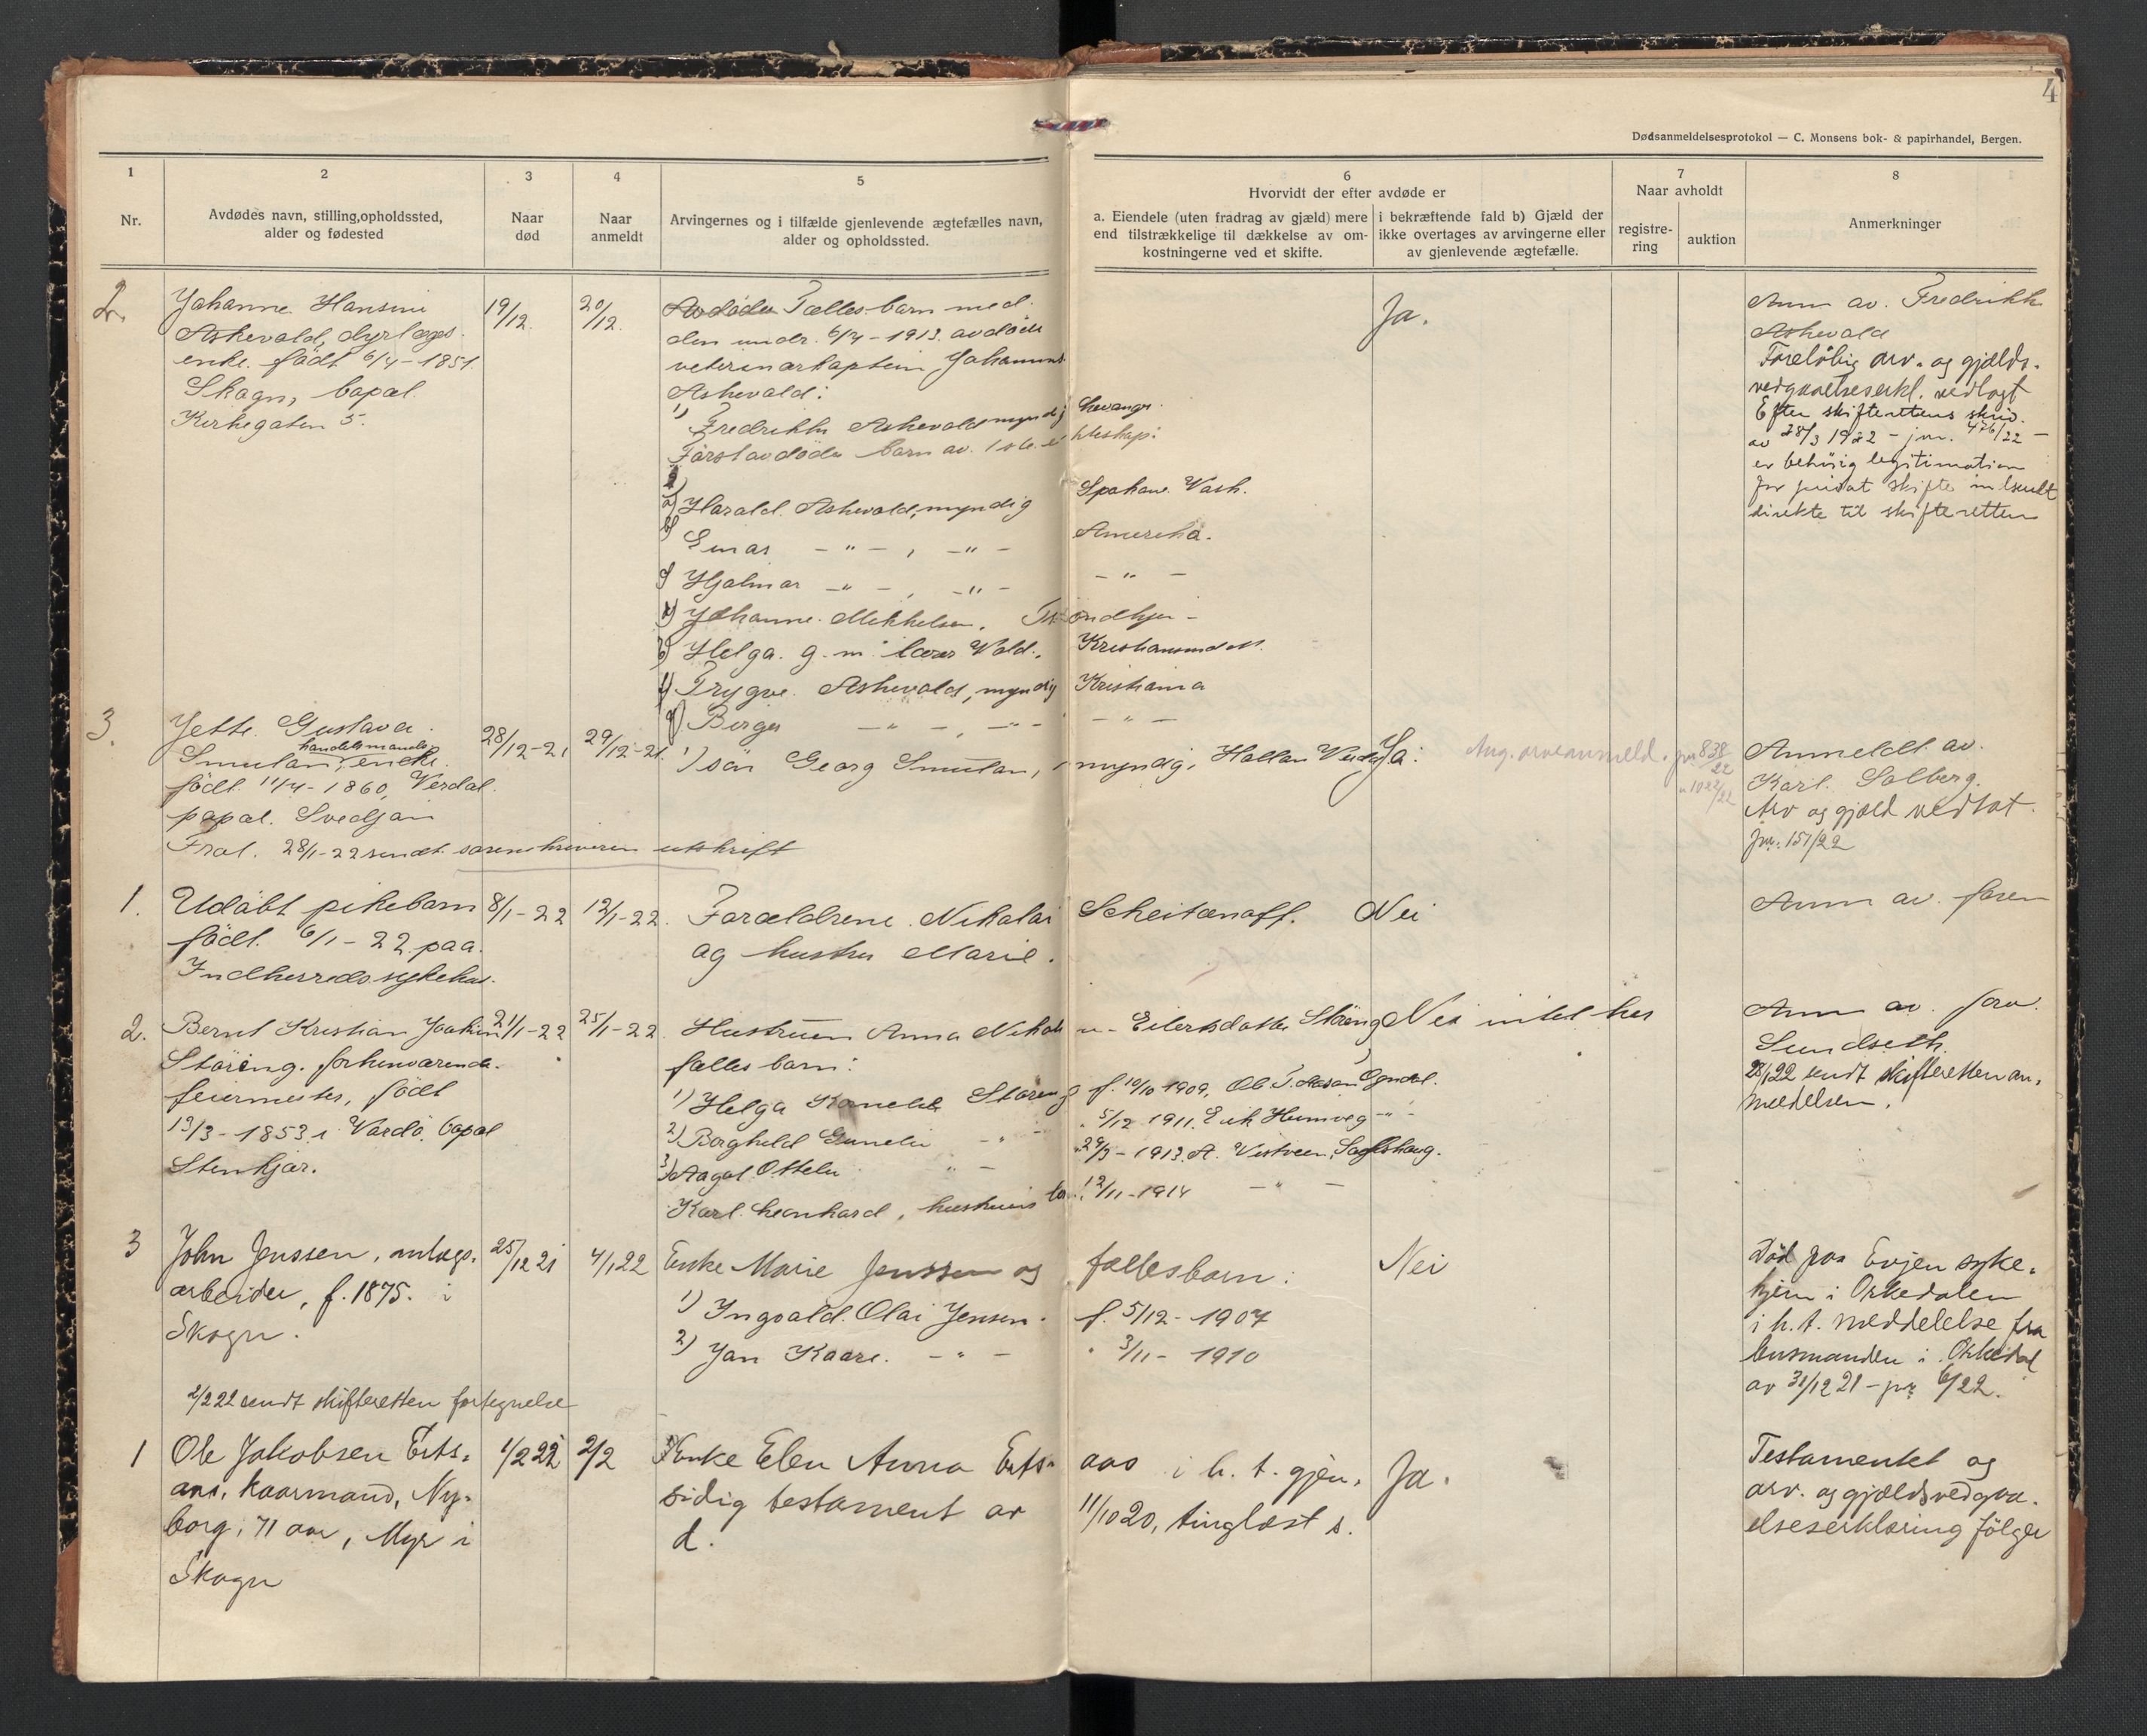 4
Dødsanmeldelsesprotokol — C. Monsens bok- & papirhandel, Bergen.
1
Nr.
2
Avdødes navn, stilling, opholdssted,
alder og fødested
3
Naar
død
4
Naar
anmeldt
5
Arvingernes og i tilfælde gjenlevende ægtefælles navn,
alder og opholdssted.
6
Hvorvidt der efter avdøde er
a. Eiendele (uten fradrag av gjæld) mere
end tilstrækkelige til dækkelse av om-
kostningerne ved et skifte.
i bekræftende fald b) Gjæld der
ikke overtages av arvingerne eller
av gjenlevende ægtefælle.
7
Naar avholdt
registre-
ring
auktion
8
Anmerkninger
2.
Johanne Hansine
Askevold, dyrlæges
enke. født 6/4-1851
Skogn, bopal
Kirkegaten 5.
19/12.
20/12.
Avdødes Fælles barn med
den undr. 6/4-1913 avdøde
veterinærkaptein Johannes
Askevold:
1) Fredrikke Askevold myndig Levanger.
Førstavdødes barn av 1ste ekteskap:
a) Harald Askevold, myndig Spokane Wash.
b) Einar -"-, -"- Amerika.
c) Hjalmar -"-, -"- -"-
d) Johanne Mikkelsen. Trondhjem
e) Helga g. m. lærer Wold. Kristiansund
f) Trygve Askevold, myndig Kristiania
g) Borger -"-, -"- -"-
Ja.
Anm av. Fredrikke
Askevold
Foreløbig arv- og gjælds-
vedgaaelseserkl. vedlagt
Efter skifterettens skriv.
av 28/3 1922 - jnr. 476/22 -
er behørig legitimation
for privat skifte innsendt
direkte til skifteretten
3.
Jette Gustava
Smulan, handelsmands enke.
født 11/4-1860, Verdal.
bopal. Svedjan
Prot. 28/1-22 sendt sorenskriveren utskrift
28/12-21
29/12-21.
1) søn Georg Smulan, myndig, Hallan Verdal
Ja.
Ang. arveanmeld. jnr 838/22
" 1022/22
Anmeldt av
Karl Solberg.
Arv og gjæld vedtat.
jnr. 151/22
1.
Udøbt pikebarn
født 6/1-22 paa
Indherreds sykehus.
8/1-22
12/1-22.
Forældrene Nikolai Scheitanoff.
og hustru Marie.
Nei
Anm av. faren
2.
Bernt Kristian Joakim
Støring. forhenværende
feiermester, født
13/3-1853 i Vardø, bopal
Stenkjær.
21/1-22
25/1-22
Hustruen Anna Eilertsdatter Støring
fælles barn:
1) Helga Kornelie Støring f. 10/10 1909, Ogndal.
2) Borghild -"- " 5/12 1911, -"-
3) Aagot Ottelie -"- " 29/3-1913. A.
Karl Leonhard, hustruens barn 12/11-1914 -"-
Nei intet her
Anm av. fru
Sundseth.
28/1 22 sendt skifteretten an-
meldelsen.
3
John Jenssen, anlægs-
arbeider, f. 1875. i
Skogn.
2/2 22 sendt skifteretten fortegnelse
25/12 21
4/1 22
Enke Marie Jenssen og fællesbarn:
1) Ingvald Olai Jensen. f. 5/12-1907
2) Jan Kaare. -"- " 3/11-1910
Nei
Død paa Evjen syke-
hjem i Orkedalen
i h. t. meddelelse fra
lensmanden i Orkedal
av 31/12 21 - jnr 6/22.
1
Ole Jakobsen Erts-
aas, kaarmand, Ny-
borg, 71 aar, Myr i
Skogn
1/2 22
2/2
Enke Elen Anna Ertsaas i h. t. gjen-
sidig testament av 11/10 20, tinglæst s.
d.
Ja.
Testamentet og
arv- og gjældsvedgaa-
elseserklæring følger